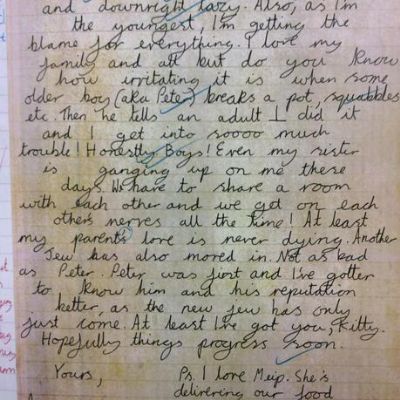 and downright lazy. Also, as I'm
the youngest, I'm getting the
blame for everything. I love my
family and all but do you know
how irritating it is when some
older boy (aka Peter) breaks a pot, squabbles
etc. Then he tells an adult I did it
and I get into soooo much
trouble! Honestly Boys! Even my sister
is ganging up on me these
days. We have to share a room
with each other and we get on each
others nerves all the time! At least
my parent's love is never dying. Another
Jew has also moved in. Not as bad
as Peter. Peter was first and I've gotten
to know him and his reputation
better, as the new jew has only
just come. At least I've got you, Kitty.
Hopefully things progress soon.
Yours,
Ps. I love Meip. She's
delivering our food